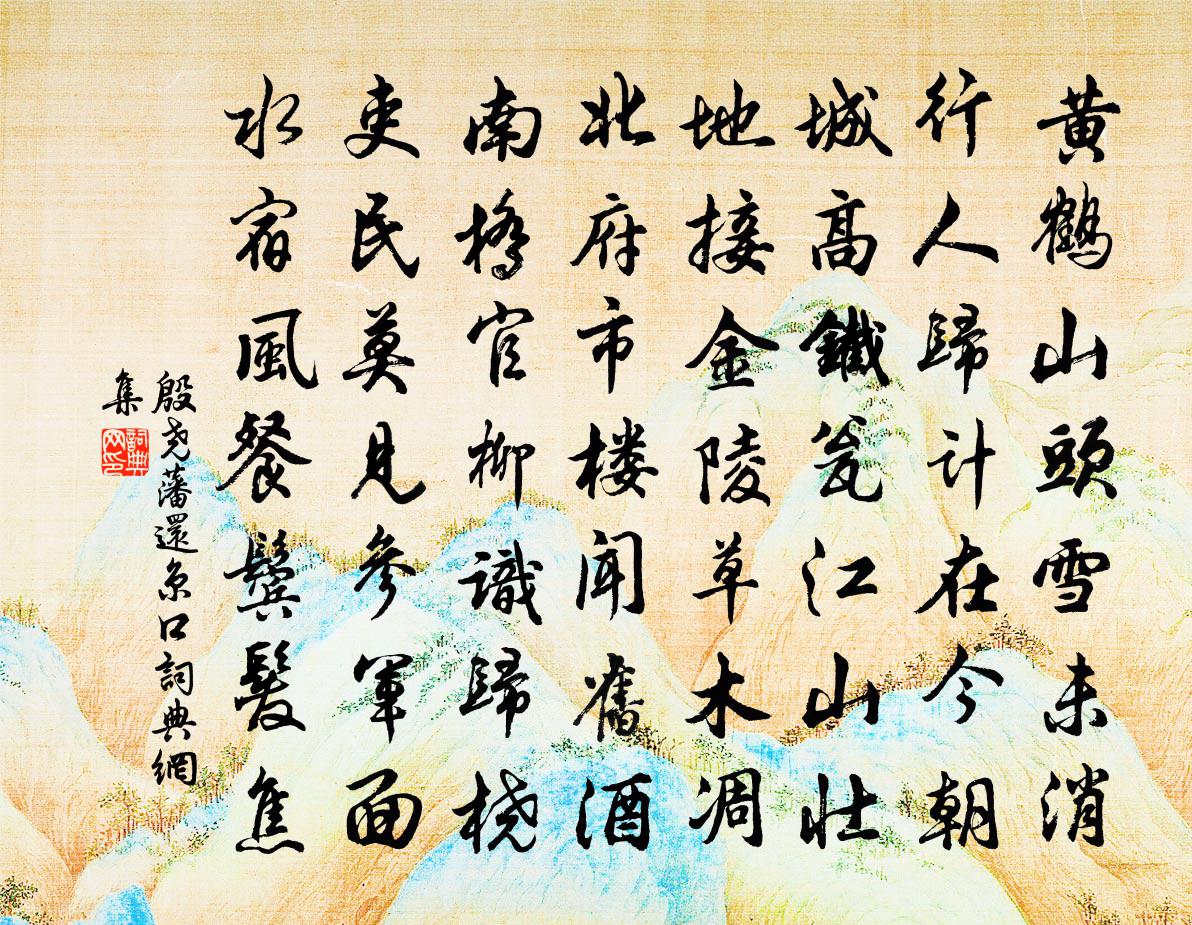 黃鶴山頭雪未消
行人歸計在今朝
城高鐵瓮江山壯
地接金陵草木凋
北府市楼聞舊酒
南橋官柳識歸桡
吏民莫見參軍面
水宿風餐鬓髮焦
殷尧藩還京口詞典網
集
詞典
网印